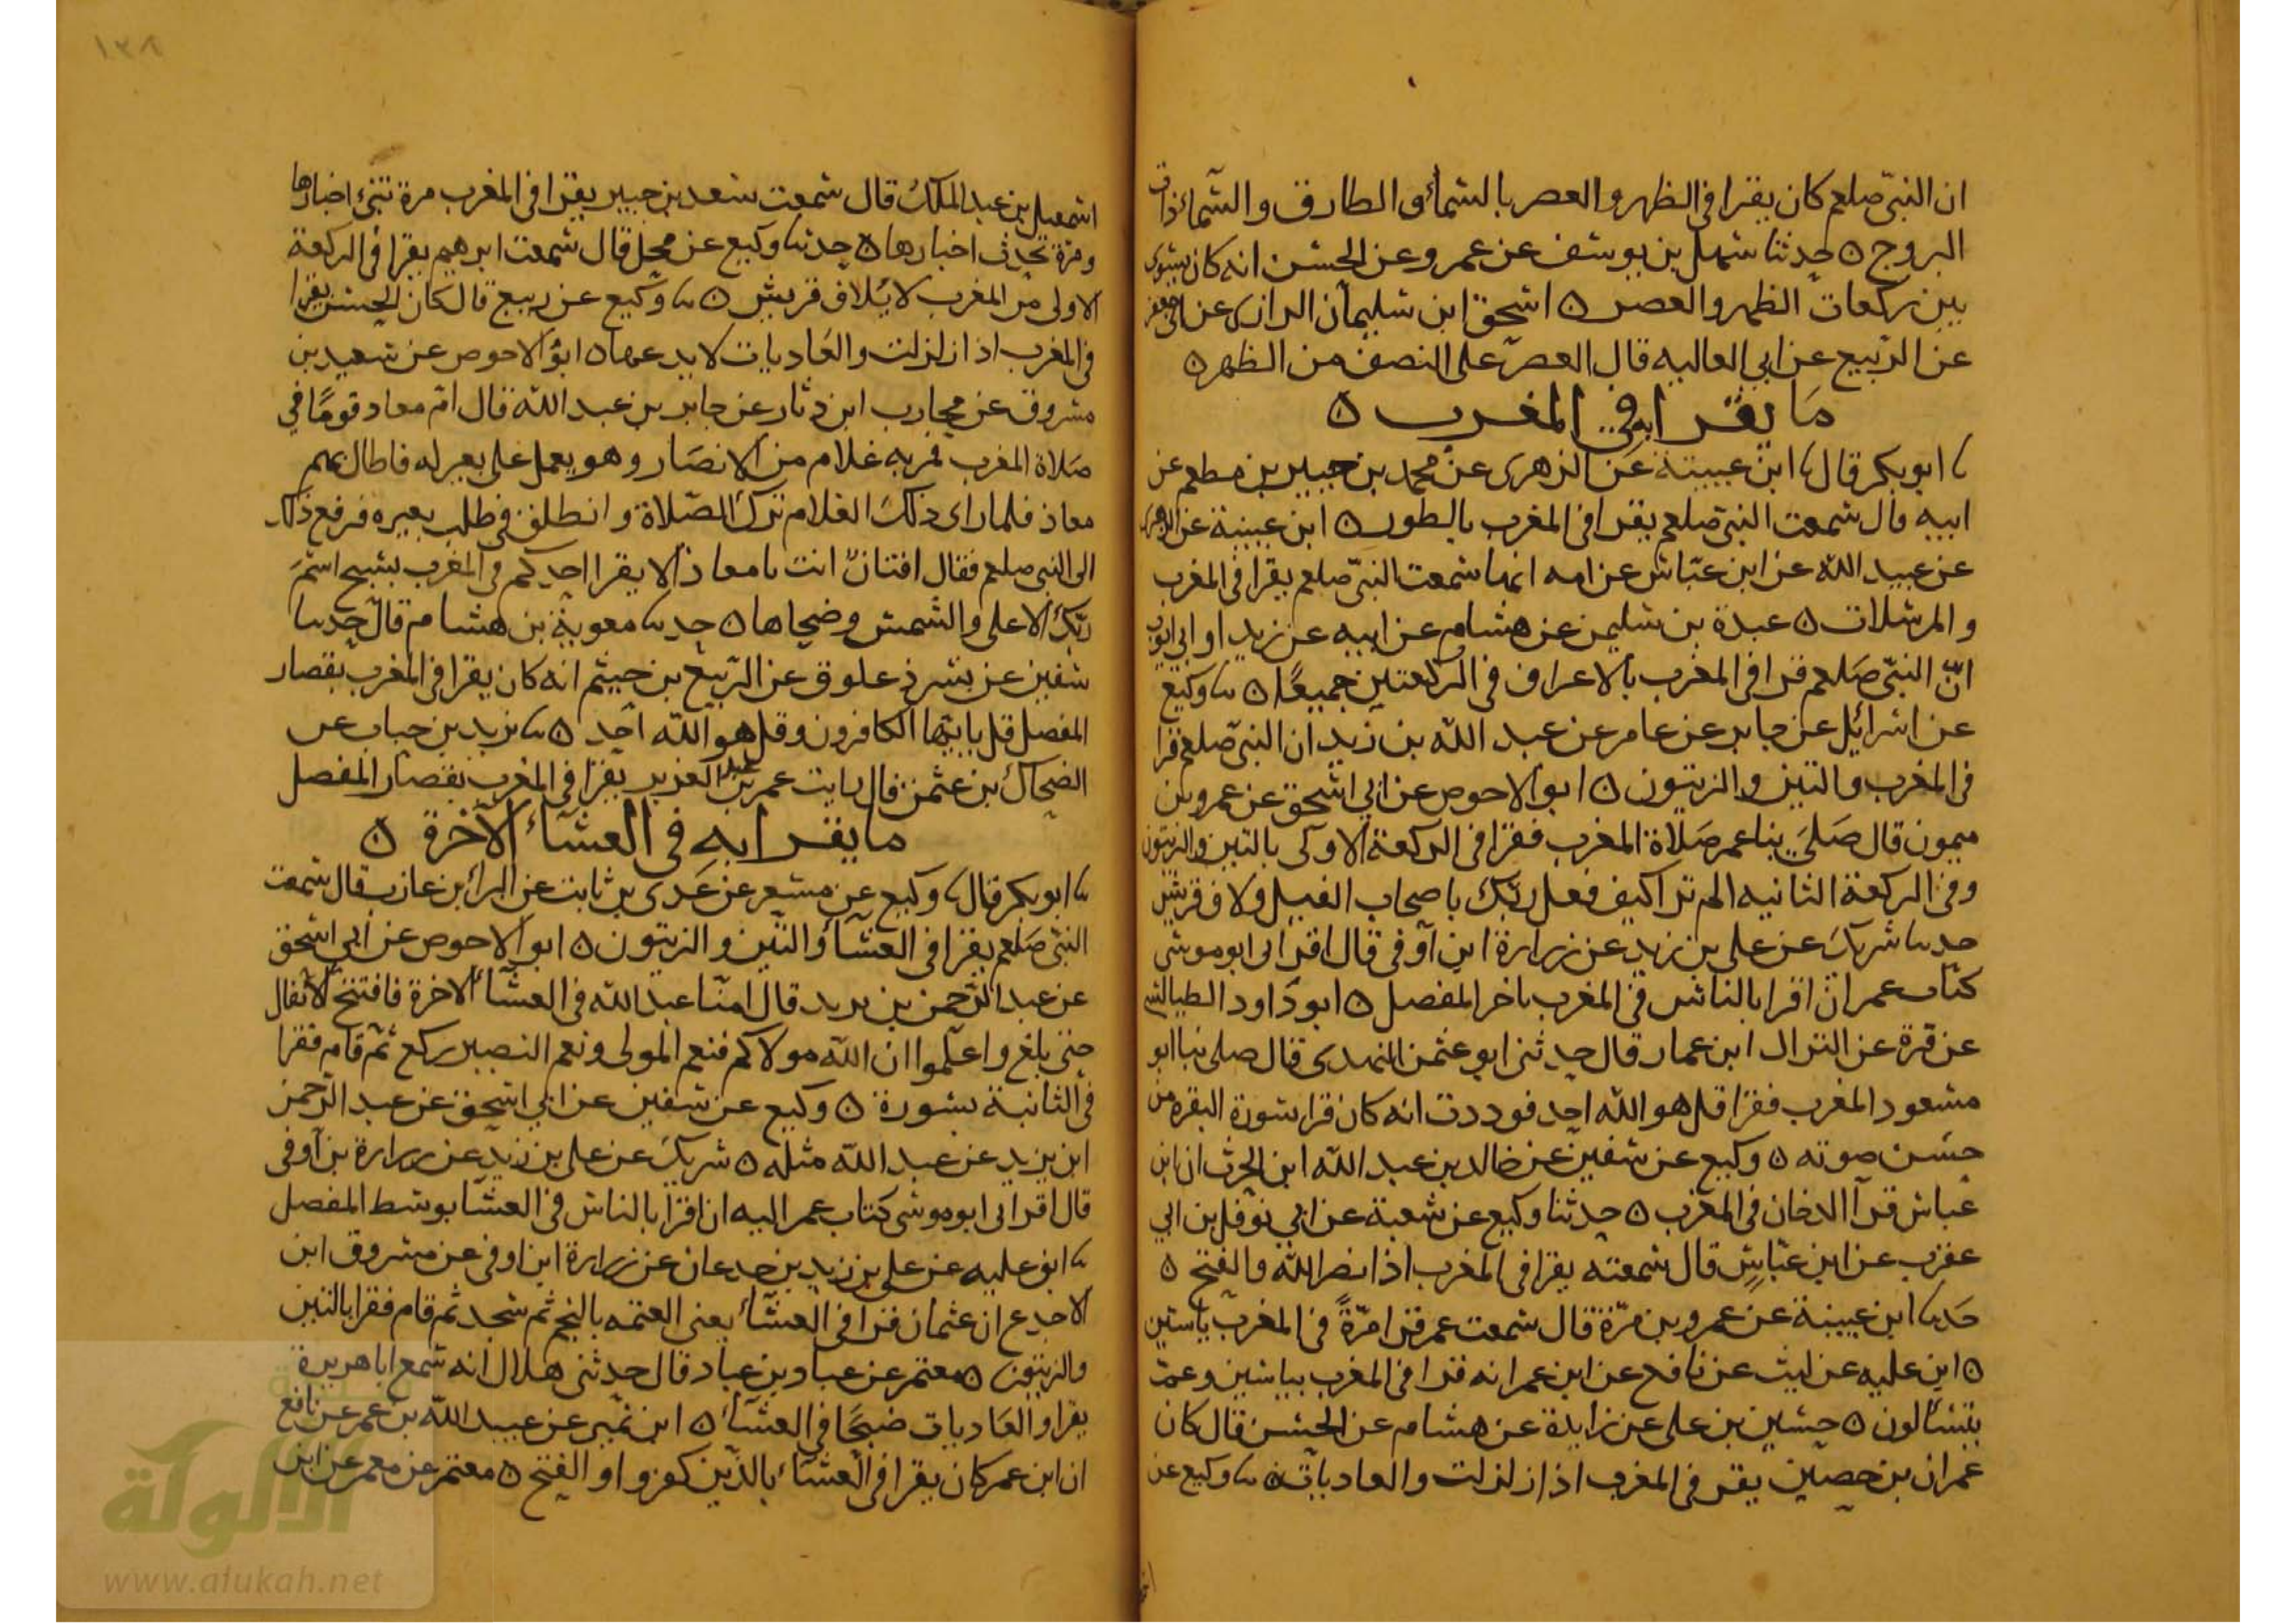 ان النبي صلعم كان يقرا في الظهر والعصر بالسماء والطارق والسماء ذات
البروج ٥ حدثنا سهل بن يوسف عن عمرو عن الحسن انه كان يسوى
بين ركعات الظهر والعصر ٥ اسحق ابن سليمان الرازى عن ابى جعفر
عن الربيع عن ابي العاليه قال العصر على النصف من الظهر ٥
ما يقرا به في المغرب ٥
ابو بكر قال ابن عيينة عن الزهرى عن محمد بن جبير بن مطعم عن
ابيه قال سمعت النبي صلعم يقرا في المغرب بالطور ٥ ابن عيينة عن الزهرى
عن عبيد الله عن ابن عباس عن امه انها سمعت النبي صلعم يقرا في المغرب
والمرسلات ٥ عبدة بن سليمن عن هشام عن ابيه عن زيد او ابي ايوب
ان النبي صلعم قرا في المغرب بالاعراف في الركعتين جميعا ٥ وكيع
عن اسرائيل عن جابر عن عامر عن عبد الله بن زيد ان النبي صلعم قرا
في المغرب والتين والزيتون ٥ ابو الاحوص عن ابي اسحق عن عمرو بن
ميمون قال صلى بنا عمر صلاة المغرب فقرا في الركعة الاولى بالتين والزيتون
وفي الركعة الثانيه الم تر كيف فعل ربك باصحاب الفيل ولاف قريش
حدثنا شريك عن على بن زيد عن زرارة ابن اوفى قال اقرانى ابو موسى
كتاب عمر ان اقرا بالناس في المغرب باخر المفصل ٥ ابو داود الطيالسى
عن قرة عن النزال ابن عمار قال حدثنى ابو عثمن النهدى قال صلى بنا ابن
مسعود المغرب فقرا قل هو الله احد فوددت انه كان قرا سورة البقره من
حسن صوته ٥ وكيع عن سفين عن خالد بن عبد الله ابن الحرث ان ابن
عباس قرا الدخان في المغرب ٥ حدثنا وكيع عن شعبة عن ابي نوفل بن ابي
عقرب عن ابن عباس قال سمعته يقرا في المغرب اذا نصر الله والفتح ٥
حدثنا ابن عيينة عن عمرو بن مرة قال سمعت عمر قرا مرة في المغرب ياسين
٥ ابن عليه عن ليث عن نافع عن ابن عمر انه قرا في المغرب بياسين وعم
يتسالون ٥ حسين بن على عن زايدة عن هشام عن الحسن قال كان
عمران بن حصين يقر في المغرب اذا زلزلت والعاديات ٥ وكيع عن
١٣٨
اسمعيل بن عبد الملك قال سمعت سعد بن جبير يقرا في المغرب مرة تنبئ اخبارها
ومرة تحدث اخبارها ٥ حدثنا وكيع عن محل قال سمعت ابرهيم يقرا في الركعة
الاولى من المغرب لايلاف قريش ٥ وكيع عن ربيع قال كان الحسن يقرا
في المغرب اذا زلزلت والعاديات لا يدعها ٥ ابو الاحوص عن سعيد بن
مسروق عن محارب ابن دثار عن جابر بن عبد الله قال ام معاذ قوما في
صلاة المغرب فمر به غلام من الانصار وهو يعمل على بعير له فاطال بهم
معاذ فلما راى ذلك الغلام ترك الصلاة وانطلق في طلب بعيره فرفع ذلك
الى النبي صلعم فقال افتان انت يا معاذ الا يقرا احدكم في المغرب بسبح اسم
ربك الاعلى والشمس وضحاها ٥ حدثنا معوية بن هشام قال حدثنا
سفين عن بسر ذعلوق عن الربيع بن خيثم انه كان يقرا في المغرب بقصار
المفصل قل يا ايها الكافرون وقل هو الله احد ٥ زيد بن حباب عن
الضحاك بن عثمن قال رايت عمر بن عبد العزيز يقرا في المغرب بقصار المفصل
ما يقرا به في العشاء الاخرة ٥
ابو بكر قال وكيع عن مسعر عن عدى بن ثابت عن البراء بن عازب قال سمعت
النبي صلعم يقرا في العشاء والتين والزيتون ٥ ابو الاحوص عن ابي اسحق
عن عبد الرحمن بن يزيد قال امنا عبد الله في العشاء الاخرة فافتتح الانفال
حتى بلغ واعلموا ان الله مولاكم فنعم المولى ونعم النصير ركع ثم قام فقرا
في الثانية بسورة ٥ وكيع عن سفين عن ابي اسحق عن عبد الرحمن
ابن يزيد عن عبد الله مثله ٥ شريك عن على بن زيد عن زرارة بن اوفى
قال اقرانى ابو موسى كتاب عمر اليه ان اقرا بالناس في العشا بوسط المفصل
ابن عليه عن على بن زيد بن جدعان عن زرارة ابن اوفى عن مسروق ابن
الاجدع ان عثمان قرا في العشاء يعنى العتمه بالنجم ثم سجد ثم قام فقرا بالتين
والزيتون ٥ معتمر عن عباد بن عباد قال حدثنى هلال انه سمع ابا هريرة
يقرا والعاديات ضبحا في العشاء ٥ ابن نمير عن عبيد الله بن عمر عن نافع
ان ابن عمر كان يقرا في العشاء بالذين كفروا والفتح ٥ معتمر عن معمر عن ابن
الألوكة
www.alukah.net